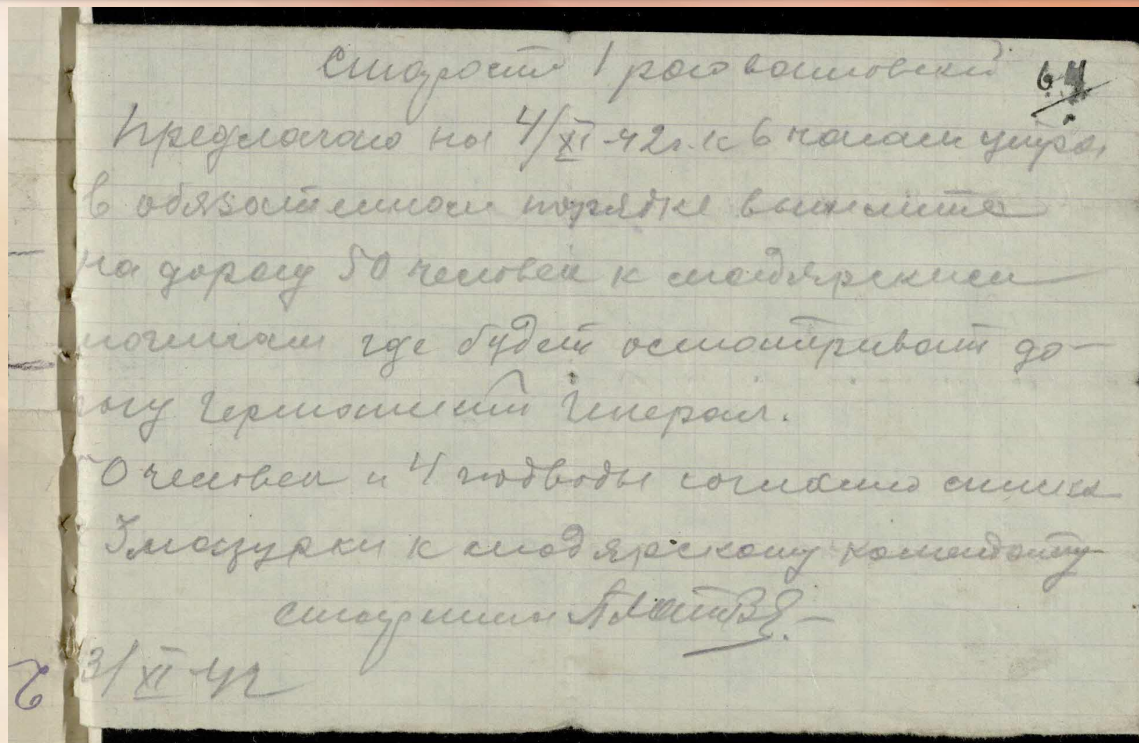 Старосте 1
64
Предлагаю на 4/XI-42г. к 6 часам утра
в обязательном порядке вышлите
на дорогу 50 человек к мадярским
где будет осматриват до-
рогу Германский Генерал.
50 человек и 4 подводы согласно списка
к мадярскому коменданту
старшина
3/XI-42